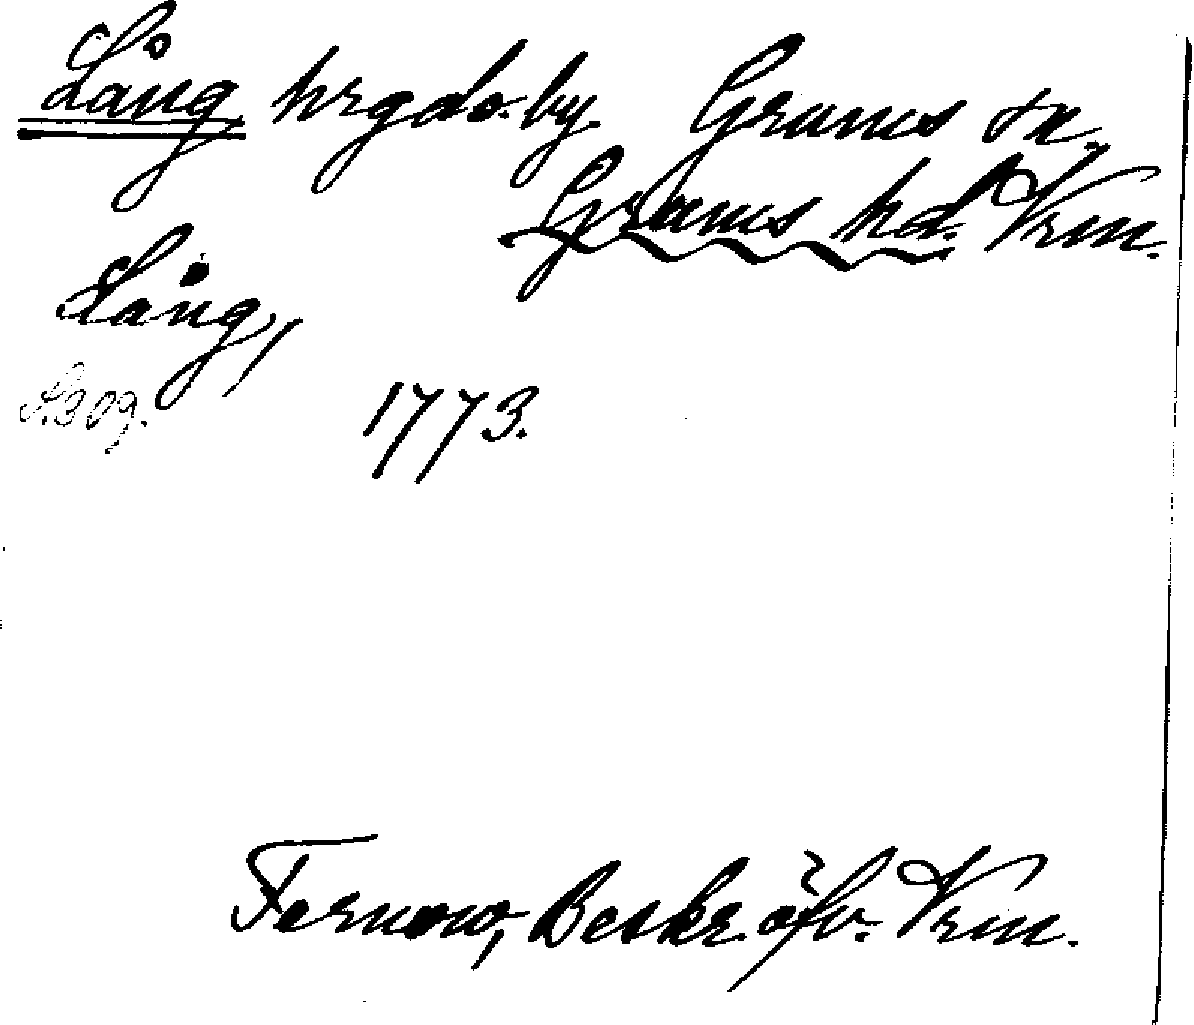 Lång hrgds.by. Grums sn.
Grums hd. Vrm.
Lång,
S.309.
1773.
Fernow, Beskr. öfv. Vrm.